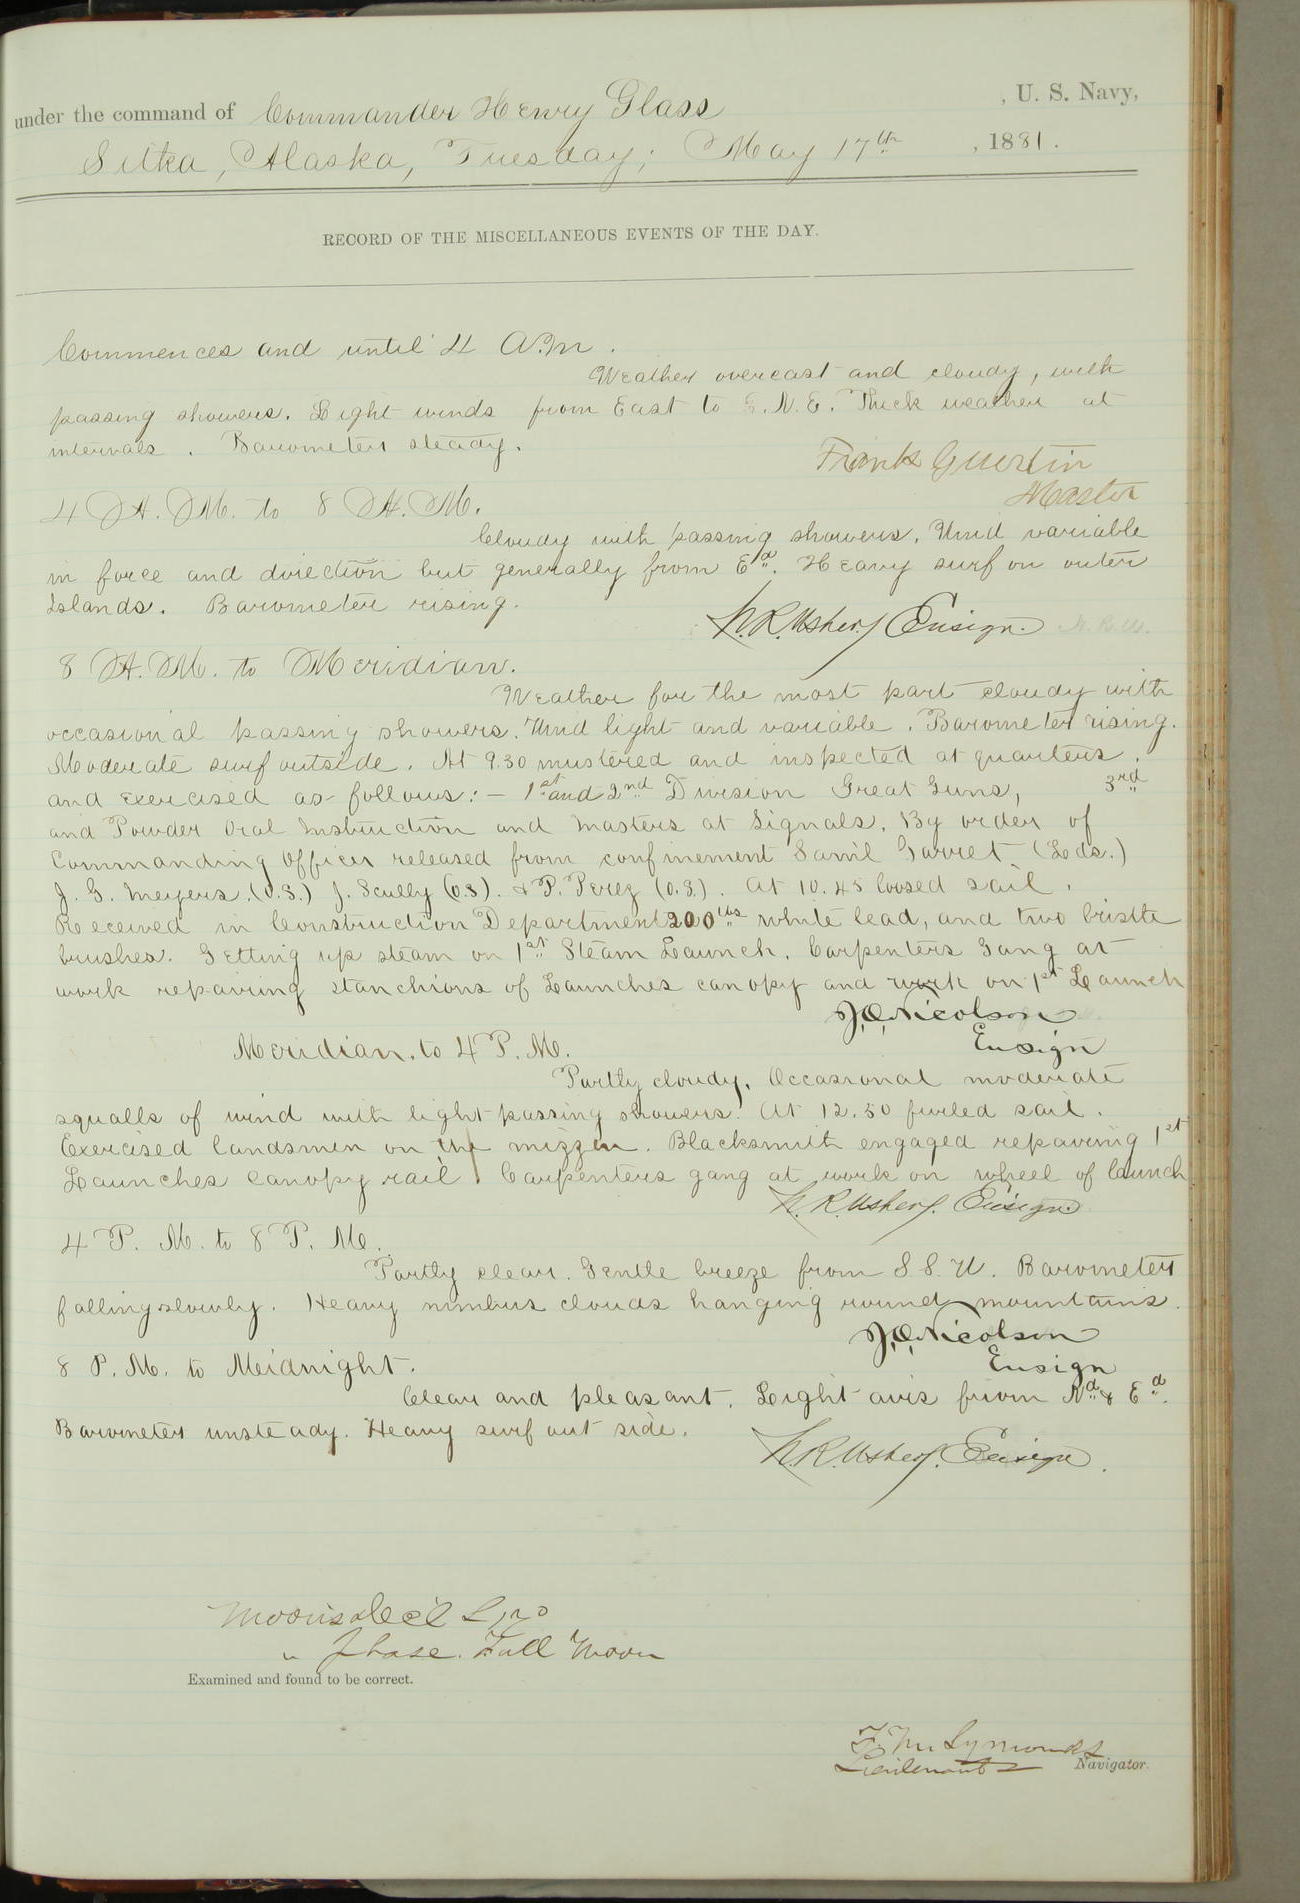 under the command of Commander Henry Glass , U. S. Navy,
Sitka, Alaska, Tuesday; May 17th , 1881.
RECORD OF THE MISCELLANEOUS EVENTS OF THE DAY.
Commences and until 4 A.M.
Weather overcast and cloudy, with
passing showers. Light winds from East to E.N.E. Thick weather at
intervals. Barometer steady.
Frank Guertin
Master
4 A.M. to 8 A.M.
Cloudy with passing showers. Wind variable
in force and direction but generally from Ed. Heavy surf on outer
Islands. Barometer rising.
N.R. Usher, Ensign. N.R.U.
8 A.M. to Meridian.
Weather for the most part cloudy with
occasional passing showers. Wind light and variable. Barometer rising.
Moderate surf outside. At 9.30 mustered and inspected at quarters.
and exercised as follows:— 1st and 2nd Division Great Guns, 3rd
and Powder Oral Instruction and Masters at Signals. By order of
Commanding Officer released from confinement Saml Garret (Lds.)
J. G. Meyers (O.S.) J. Scully (O.S). & P. Perez (O.S.). At 10.45 loosed sail.
Received in Construction Department 200 lbs white lead, and two bristle
brushes. Getting up steam on 1st Steam Launch. Carpenters Gang at
work repairing stanchions of Launches canopy and work on 1st Launch
J.O. Nicolson
Ensign
Meridian. to 4 P.M.
Partly cloudy. Occasional moderate
squalls of wind with light passing showers. At 12.50 furled sail.
Exercised landsmen on the mizzen. Blacksmith engaged repairing 1st
Launches canopy rail. Carpenters gang at work on wheel of launch
N.R. Usher. Ensign.
4 P. M. to 8 P. M.
Partly clear. Gentle breeze from S.S.W. Barometer
falling slowly. Heavy nimbus clouds hanging round mountains.
J.O. Nicolson
Ensign
8 P.M. to Meidnight.
Clear and pleasant. Light airs from Nd & Ed.
Barometer unsteady. Heavy surf out side.
N.R. Usher. Ensign.
Moon's Dec'l
" Phase. Full Moon
Examined and found to be correct.
F. M. Symonds
Lieutenant Navigator.